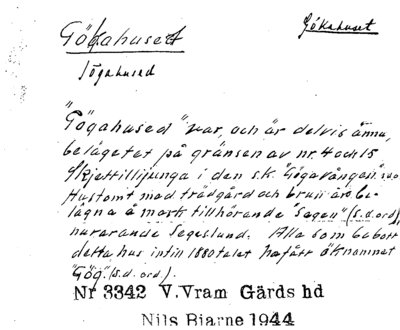 Gökahuset
Gökahuset
Gögahused
"Gögahused" var, och är delvis ännu,
beläget på gränsen av nr. 4 och 15
Skjettilljunga i den s.k. "Gögavången".
Hustomt med trädgård och brunn äro be-
lägna å mark tillhörande "Sagen" (s.d. ord),
nuvarande Segeslund. Alla som bebott
detta hus intill 1880talet ha fått öknamnet
"Gög" (s.d. ord).
Nr 3342 V.Vram Gärds hd
Nils Bjarne 1944